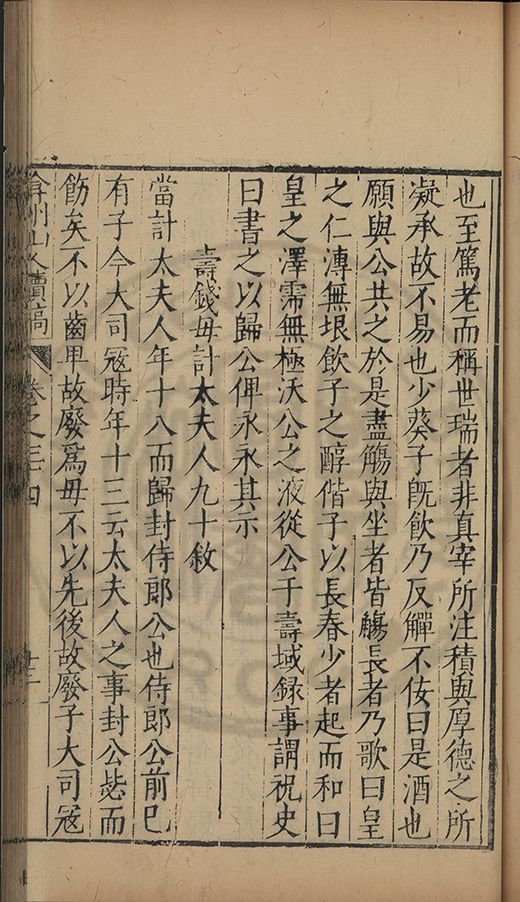 也至篤老而稱世瑞者非真宰所注積與厚德之所
凝承故不易也少葵子旣飲乃反觶不侫曰是酒也
願與公共之於是盡觴與坐者皆觴長者乃歌曰皇
之仁溥無垠飲子之醇偕子以長春少者起而和曰
皇之澤霈無極沃公之液從公千壽域録事謂祝史
曰書之以歸公俾永永其示
壽錢母計太夫人九十敘
當計太夫人年十八而歸封侍郎公也侍郎公前已
有子今大司寇時年十三云太夫人之事封公毖而
飭矣不以齒甲故廢爲母不以先後故廢子大司寇
弇州山人續稿 卷之三四